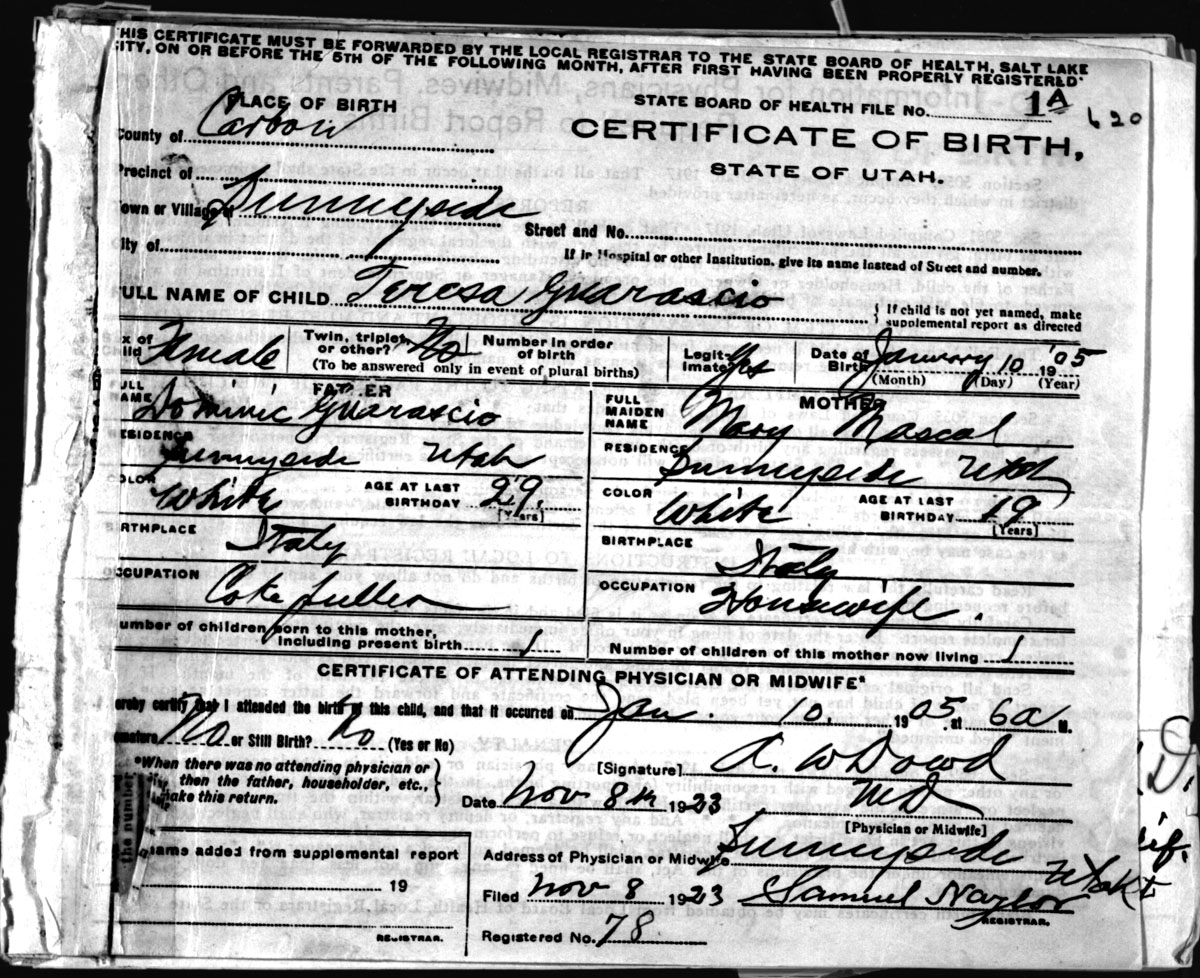 HIS CERTIFICATE MUST BE FORWARDED BY THE LOCAL REGISTRAR TO THE STATE BOARD OF HEALTH, SALT LAKE
CITY, ON OR BEFORE THE 5TH OF THE FOLLOWING MONTH, AFTER FIRST HAVING BEEN PROPERLY REGISTERED
PLACE OF BIRTH
County of Carbon
Precinct of
Town or Village of Sunnyside
City of
STATE BOARD OF HEALTH FILE No. 1A 620
CERTIFICATE OF BIRTH,
STATE OF UTAH.
Street and No.
If in Hospital or other Institution, give its name instead of Street and number.
FULL NAME OF CHILD Teresa Guarascio
If child is not yet named, make
supplemental report as directed
Sex of Child Female
Twin, triplet, or other? No
Number in order of birth
(To be answered only in event of plural births)
Legitimate Yes
Date of Birth January 10 1905
(Month) (Day) (Year)
FATHER
FULL NAME Dominic Guarascio
RESIDENCE Sunnyside Utah
COLOR White
AGE AT LAST BIRTHDAY 29
[Years]
BIRTHPLACE Italy
OCCUPATION Coke puller
MOTHER
FULL MAIDEN NAME Mary Mascal
RESIDENCE Sunnyside Utah
COLOR White
AGE AT LAST BIRTHDAY 19
[Years]
BIRTHPLACE Italy
OCCUPATION Housewife.
Number of children born to this mother, including present birth 1
Number of children of this mother now living 1
CERTIFICATE OF ATTENDING PHYSICIAN OR MIDWIFE*
hereby certify that I attended the birth of this child, and that it occurred on Jan. 10, 1905 at 6a M.
Premature No or Still Birth? No (Yes or No)
*When there was no attending physician or
then the father, householder, etc.,
make this return.
the number
[Signature] A. W Dowd
Date Nov 8th 1923 MD
[Physician or Midwife]
Address of Physician or Midwife Sunnyside Utah
Filed Nov 8 1923 Samuel Naylor
REGISTRAR.
Registered No. 78
name added from supplemental report
19
REGISTRAR.